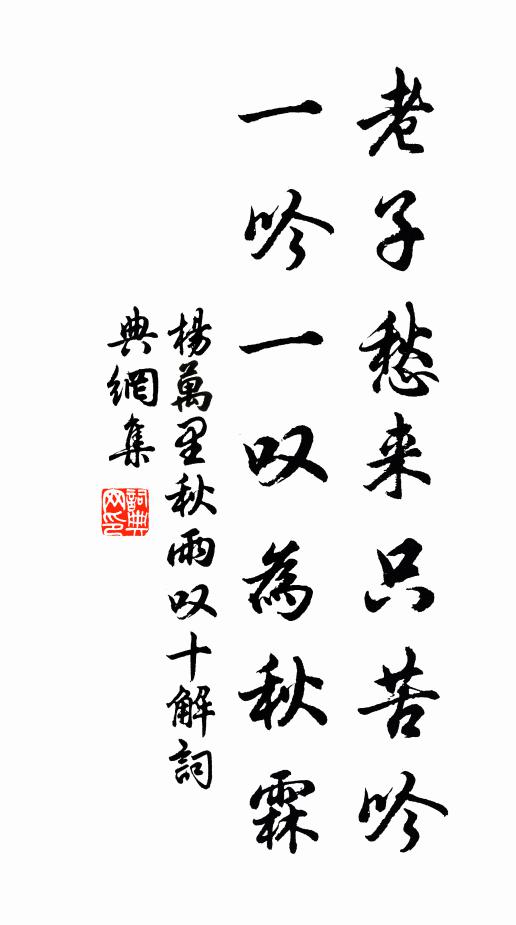 老子愁来只苦吟
一吟一叹為秋霖
楊萬里秋雨叹十解詞
典網集
詞典网印